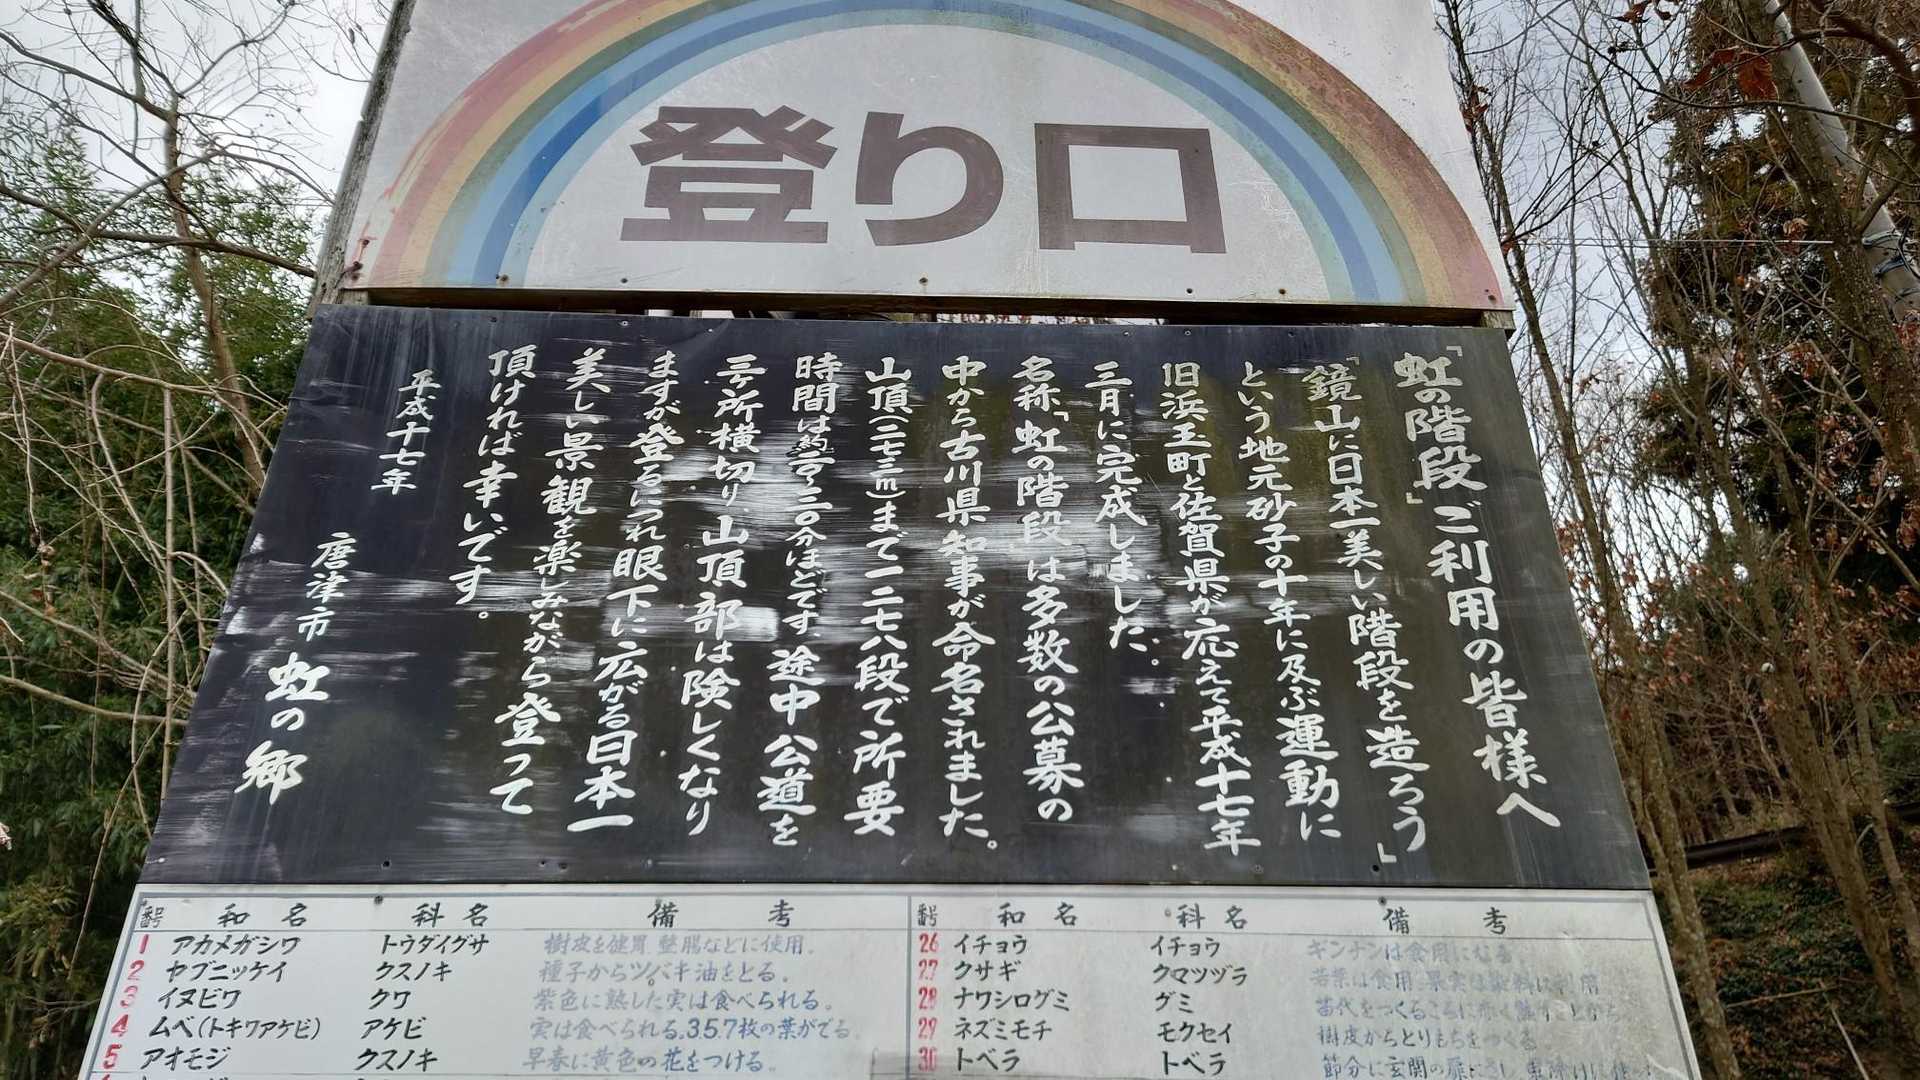 登り口
「虹の階段」ご利用の皆様へ
「鏡山に日本一美しい階段を造ろう」
という地元砂子の十年に及ぶ運動に
旧浜玉町と佐賀県が応えて平成十七年
三月に完成しました。
名称「虹の階段」は多数の公募の
中から古川県知事が命名されました。
山頂(二七三m)まで一二七八段で所要
時間は約一時間三〇分ほどです。途中公道を
三ヶ所横切り、山頂部は険しくなり
ますが登るにつれ眼下に広がる日本一
美しい景観を楽しみながら登って
頂ければ幸いです。
平成十七年
唐津市 虹の郷
番号 和名 科名 備考
1 アカメガシワ トウダイグサ 樹皮を健胃、整腸などに使用。
2 ヤブニッケイ クスノキ 種子からツバキ油をとる。
3 イヌビワ クワ 紫色に熟した実は食べられる。
4 ムベ(トキワアケビ) アケビ 実は食べられる。3.5.7枚の葉がでる。
5 アオモジ クスノキ 早春に黄色の花をつける。
番号 和名 科名 備考
26 イチョウ イチョウ ギンナンは食用になる。
27 クサギ クマツヅラ 若葉は食用、果実は染料に利用
28 ナワシログミ グミ 苗代をつくるころに赤く熟すことから
29 ネズミモチ モクセイ 樹皮からとりもちをつくる
30 トベラ トベラ 節分に玄関の扉にさし